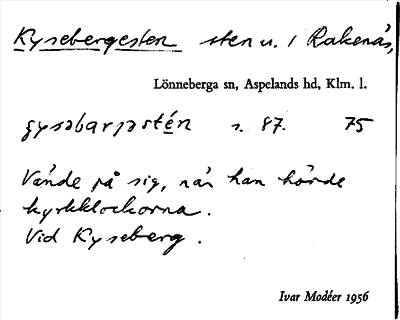 Kysebergesten sten u. i Rakenäs,
Lönneberga sn, Aspelands hd, Klm. l.
s. 87. 75
Vände på sig, när han hörde
kyrkklockorna.
Vid Kyseberg.
Ivar Modéer 1956